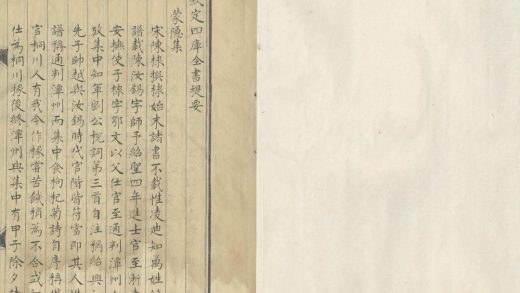 欽定四庫全書提要
蒙隱集
宋陳棣撰棣始末諸書不載惟凌迪知萬姓統
譜載陳汝錫字師予紹聖四年進士官至浙東
安撫使子棣字鄂文以父仕官至通判潭州
攷集中知軍劉公挽詞第三首自注稱紹興
先子帥越與汝錫時代官階皆符當即其人惟
譜稱通判潭州而集中食枸杞菊詩自序稱
官桐川人有我今作掾嘗苦餓稍為不合或初
仕為桐川掾後終潭州與集中有甲子除夕詩